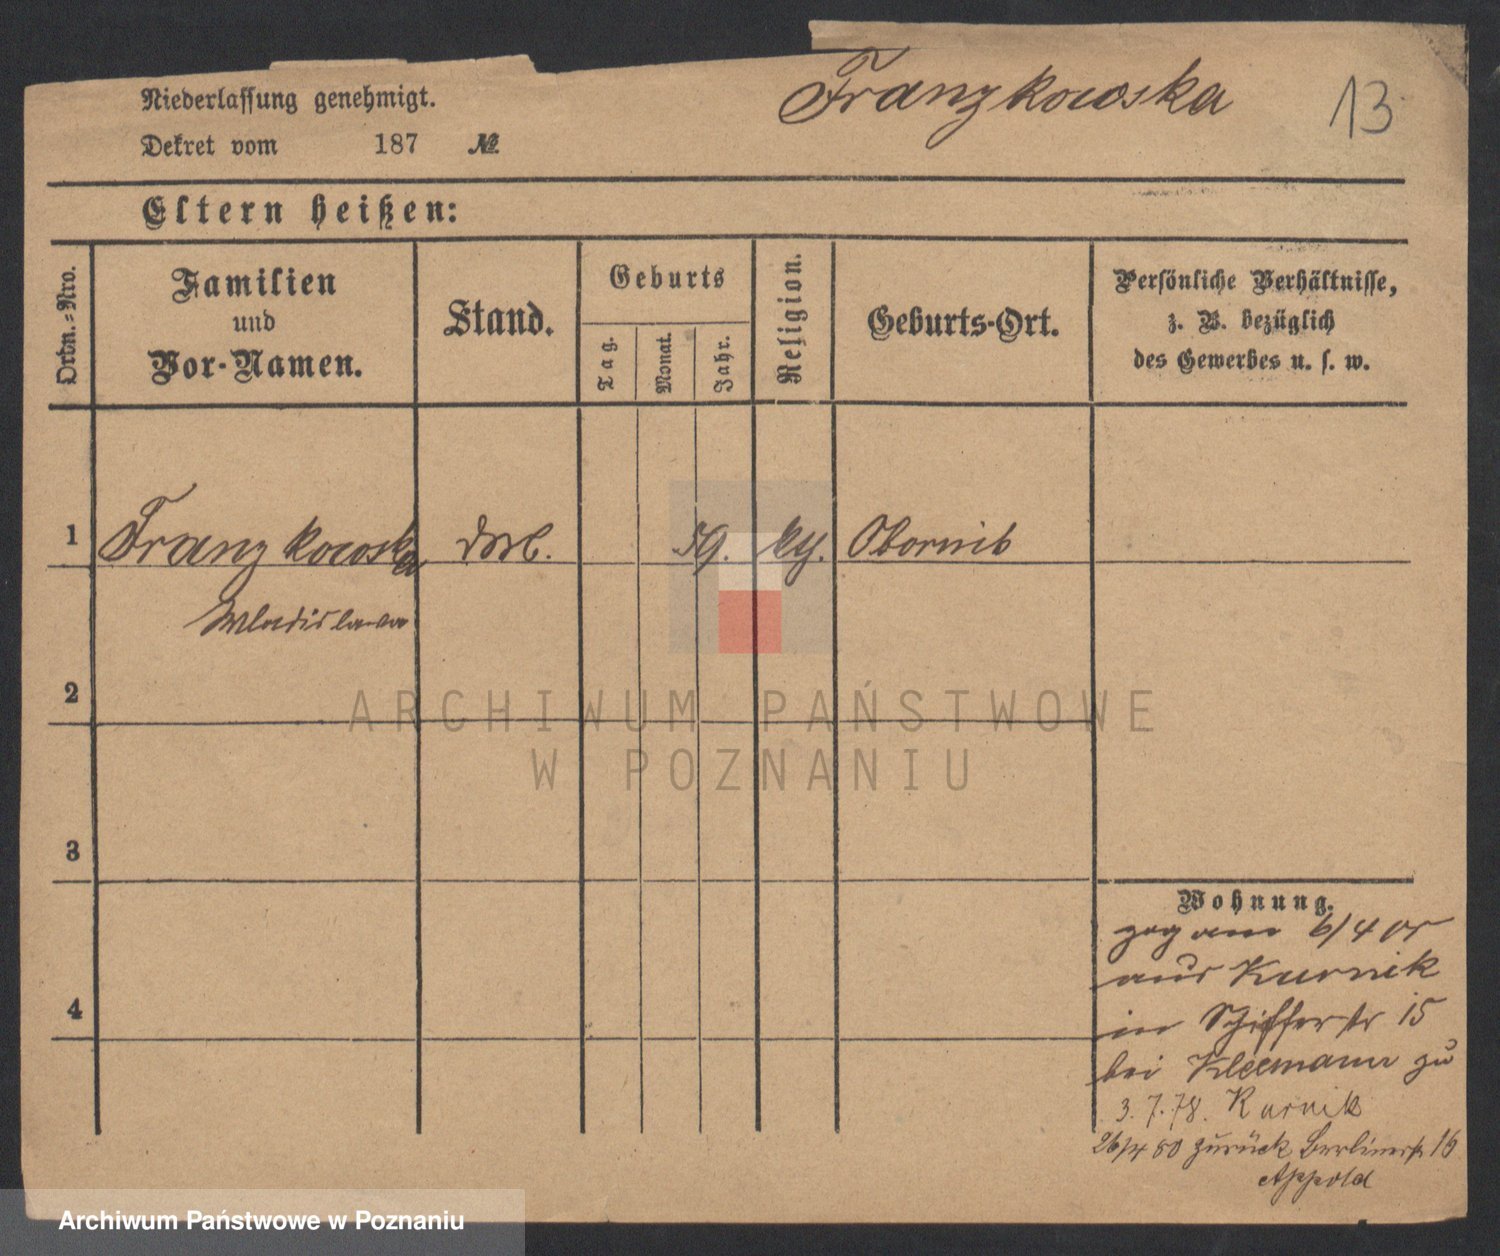 Franzkowska 13
Niederlassung genehmigt.
Dekret vom 187 №
Eltern heißen:
Ordn.-Nro.
Familien
und
Vor-Namen.
Stand.
Geburts
Tag.
Monat.
Jahr.
Religion.
Geburts-Ort.
Persönliche Verhältnisse,
z. B. bezüglich
des Gewerbes u. s. w.
1 Franzkowska 59. Obornik
Wladislawa
2
ARCHIWUM PAŃSTWOWE
W POZNANIU
3
4
Wohnung.
zog am 6/4
aus Kurnik
in Schifferstr 15
bei Kleemann zu
3.7.78. Kurnik
26/4 80 zurück Berlinerstr 16
Appold
Archiwum Państwowe w Poznaniu